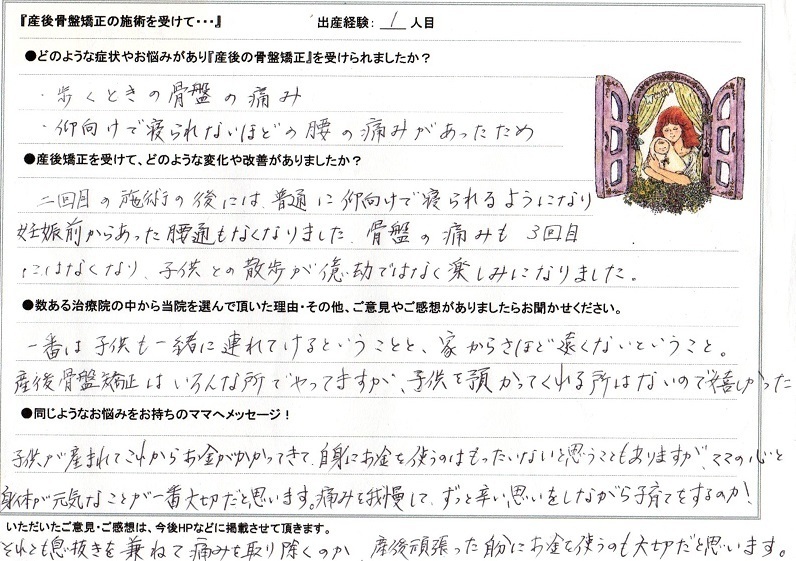 『産後骨盤矯正の施術を受けて・・・』 出産経験： 1 人目
●どのような症状やお悩みがあり『産後の骨盤矯正』を受けられましたか？
・歩くときの骨盤の痛み
・仰向けで寝られないほどの腰の痛みがあったため
●産後矯正を受けて、どのような変化や改善がありましたか？
二回目の施術の後には、普通に仰向けで寝られるようになり
妊娠前からあった腰通もなくなりました。骨盤の痛みも 3回目
にはなくなり、子供との散歩が億劫ではなく楽しみになりました。
●数ある治療院の中から当院を選んで頂いた理由・その他、ご意見やご感想がありましたらお聞かせください。
一番は子供も一緒に連れてけるということと、家からさほど遠くないということ。
産後骨盤矯正はいろんな所でやってますが、子供を預かってくれる所はないので嬉しかった
●同じようなお悩みをお持ちのママへメッセージ！
子供が産まれてこれからお金がかかってきて、自身にお金を使うのはもったいないと思うこともありますが、ママの心と
身体が元気なことが一番大切だと思います。痛みを我慢して、ずっと辛い思いをしながら子育てをするのか！
いただいたご意見・ご感想は、今後HPなどに掲載させて頂きます。
それとも息抜きを兼ねて痛みを取り除くのか、産後頑張った自分にお金を使うのも大切だと思います。